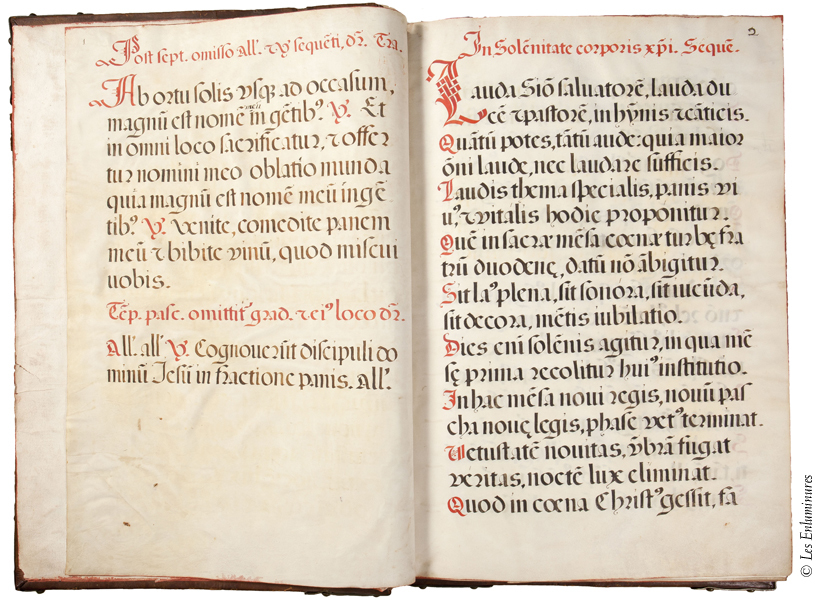 Post sept. omisso all'. et V sequẽti, dr̃. Tra.
Ab ortu solis vsq; ad occasum,
magnũ est nomẽ meũ in gẽtib⁹. V. Et
in omni loco sacrificatur, ⁊ offer
tur nomini meo oblatio munda
quia magnũ est nomẽ meũ in gẽ
tib⁹. V. Venite, comedite panem
meũ ⁊ bibite vinũ, quod miscui
uobis.
Tẽp. pasc. omittit᷑ grad. ⁊ ei⁹ loco dr̃.
All'. all' V. Cognouerũt discipuli do
minũ Jesũ in fractione panis. All'.
2.
In Solẽnitate corporis xp̃i. Sequẽ.
Lauda Siõ saluatorẽ, lauda du
cẽ ⁊ pastorẽ, in hỹnis ⁊ cãticis.
Quãtũ potes, tãtũ aude: quia maior
õni laude, nec laudare sufficis.
Laudis thema specialis, panis vi
u⁹, ⁊ vitalis hodie proponitur.
Quẽ in sacræ mẽsa cœnæ turbę fra
trũ duodenę, datũ nõ ãbigitur.
Sit la⁹ plena, sit sonora, sit iucũda,
sit decora, mẽtis iubilatio.
Dies enĩ solẽnis agitur, in qua mẽ
sę prima recolitur hui⁹ institutio.
In hac mẽsa noui regis, nouũ pas
cha nouę legis, phase vet⁹ terminat.
Vetustatẽ nouitas, vm̃brã fugat
veritas, noctẽ lux eliminat.
Quod in cœna Christ⁹ gessit, fa
© Les Enluminures